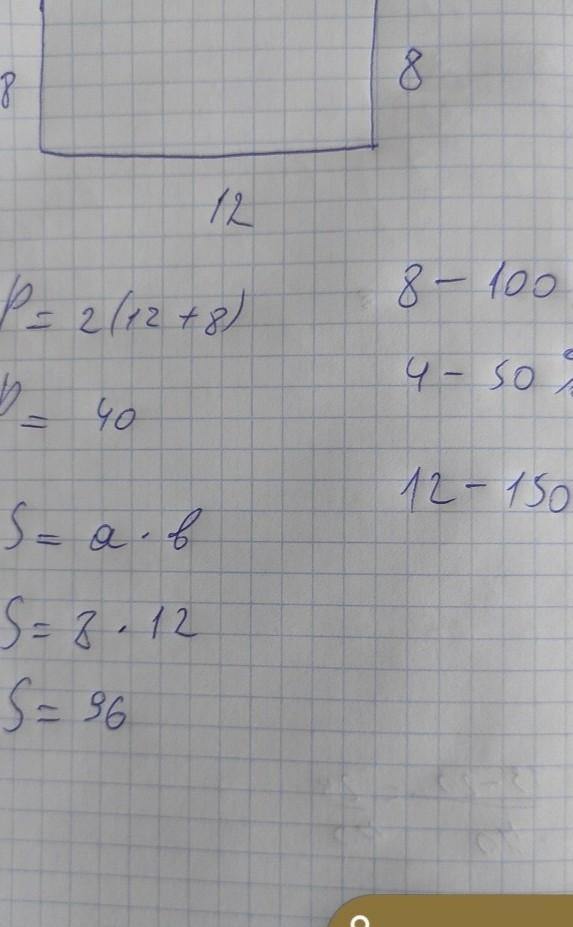 8
8
12
P = 2(12 + 8)
P = 40
S = a · b
S = 8 · 12
S = 96
8 - 100
4 - 50 %
12 - 150